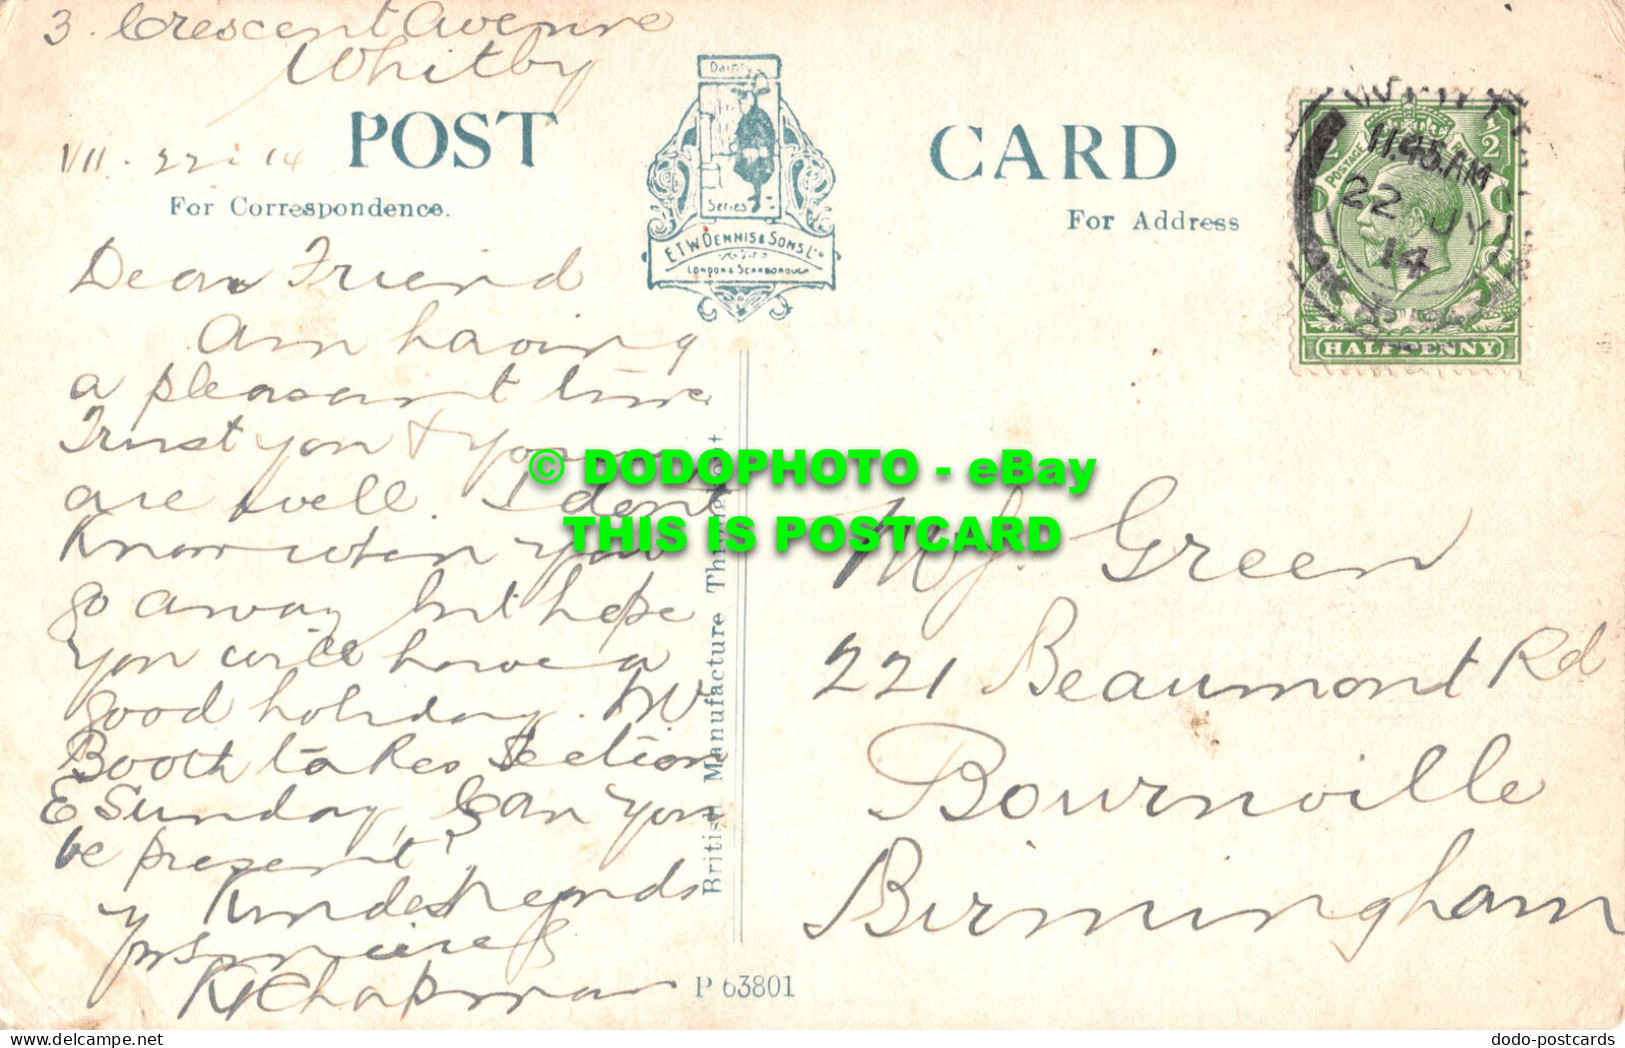 3. Crescent Avenue
Whitby
VII. 22. 14
POST CARD
For Correspondence.
For Address
Dainty
Series
E.T.W. DENNIS & SONS Ltd
LONDON & SCARBOROUGH
WHITBY
11.45 AM
22 JY
14
POSTAGE
½ ½
HALFPENNY
Dear Friend
Am having
a pleasant time
Trust you & yours
are well. I don't
know when you
go away but hope
you will have a
good holiday. Mr
Booth takes Section
E Sunday, Can you
be present?
Kindest regards
yrs sincerely
Chapman
British Manufacture Throughout
P 63801
Green
221 Beaumont Rd
Bournville
Birmingham
© DODOPHOTO - eBay
THIS IS POSTCARD
delcampe.net
dodo-postcards